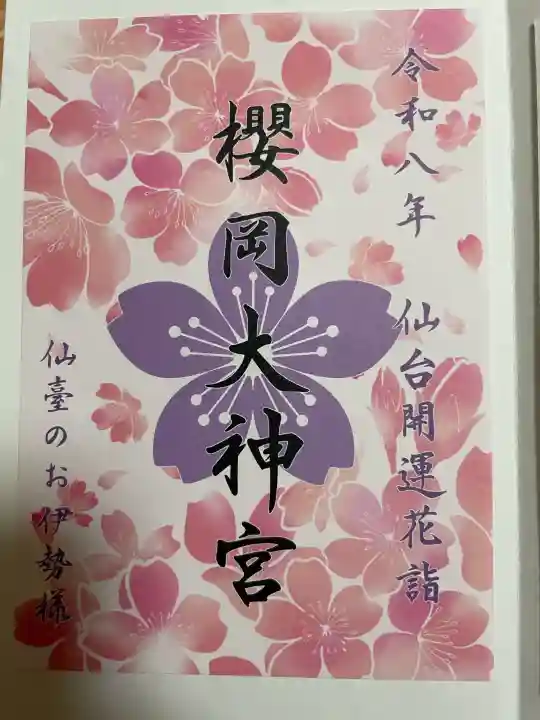 令和八年 仙台開運花詣
櫻岡大神宮
仙臺のお伊勢様